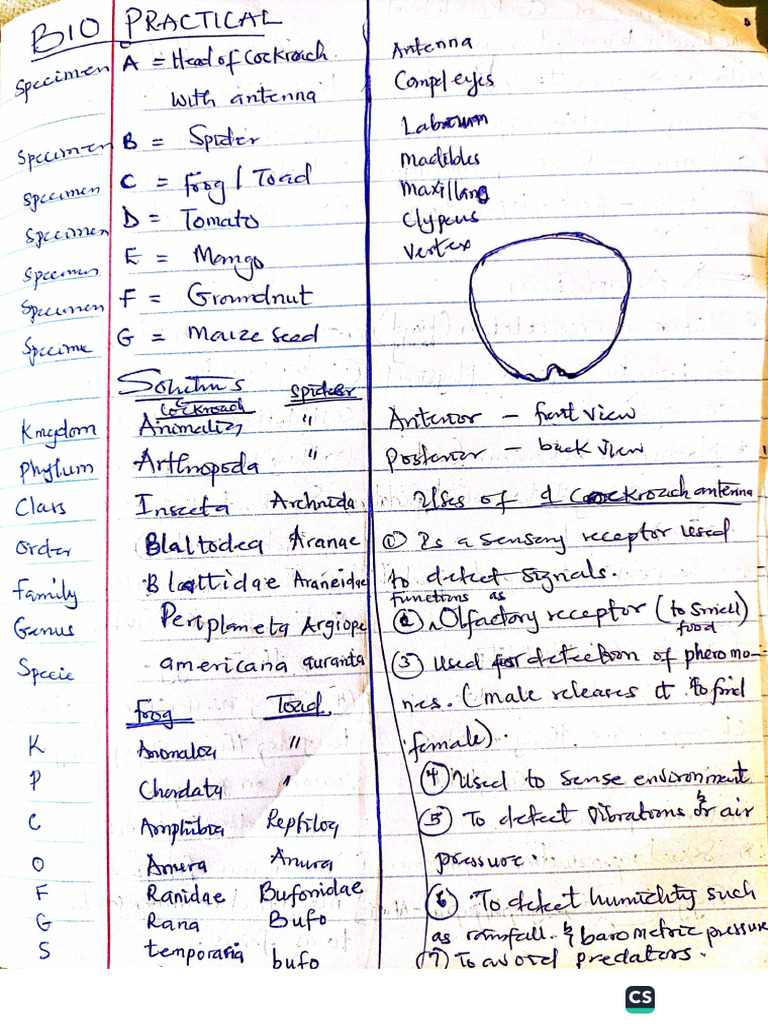 BIO PRACTICAL
Specimen A = Head of Cockroach
with antenna
Specimen B = Spider
Specimen C = Frog / Toad
Specimen D = Tomato
Specimen E = Mango
Specimen F = Groundnut
Specime G = Maize seed
Antenna
Comp eyes
Labrum
Madibles
Maxillary
Clypeus
Vertex
Solutions
Cockroach Spider
Kingdom Animalia "
Phylum Arthropoda "
Class Insecta Archnida
Order Blattodea Aranae
Family Blattidae Araneidae
Genus Periplaneta Argiope
Specie americana auranta
Frog Toad
K Animalia "
P Chordata "
C Amphibia Reptilia
O Anura Anura
F Ranidae Bufonidae
G Rana Bufo
S temporaria bufo
Anterior - front view
Posterior - back view
Uses of d Cockroach antenna
① Is a sensory receptor used
to detect signals.
② functions as Olfactory receptor (to smell)
food
③ Used for detection of pheromo-
nes. (male releases it to find
female).
④ Used to sense environment
⑤ To detect vibrations & air
pressure.
⑥ To detect humidity such
as rainfall & barometric pressure
⑦ To avoid predators.
CS